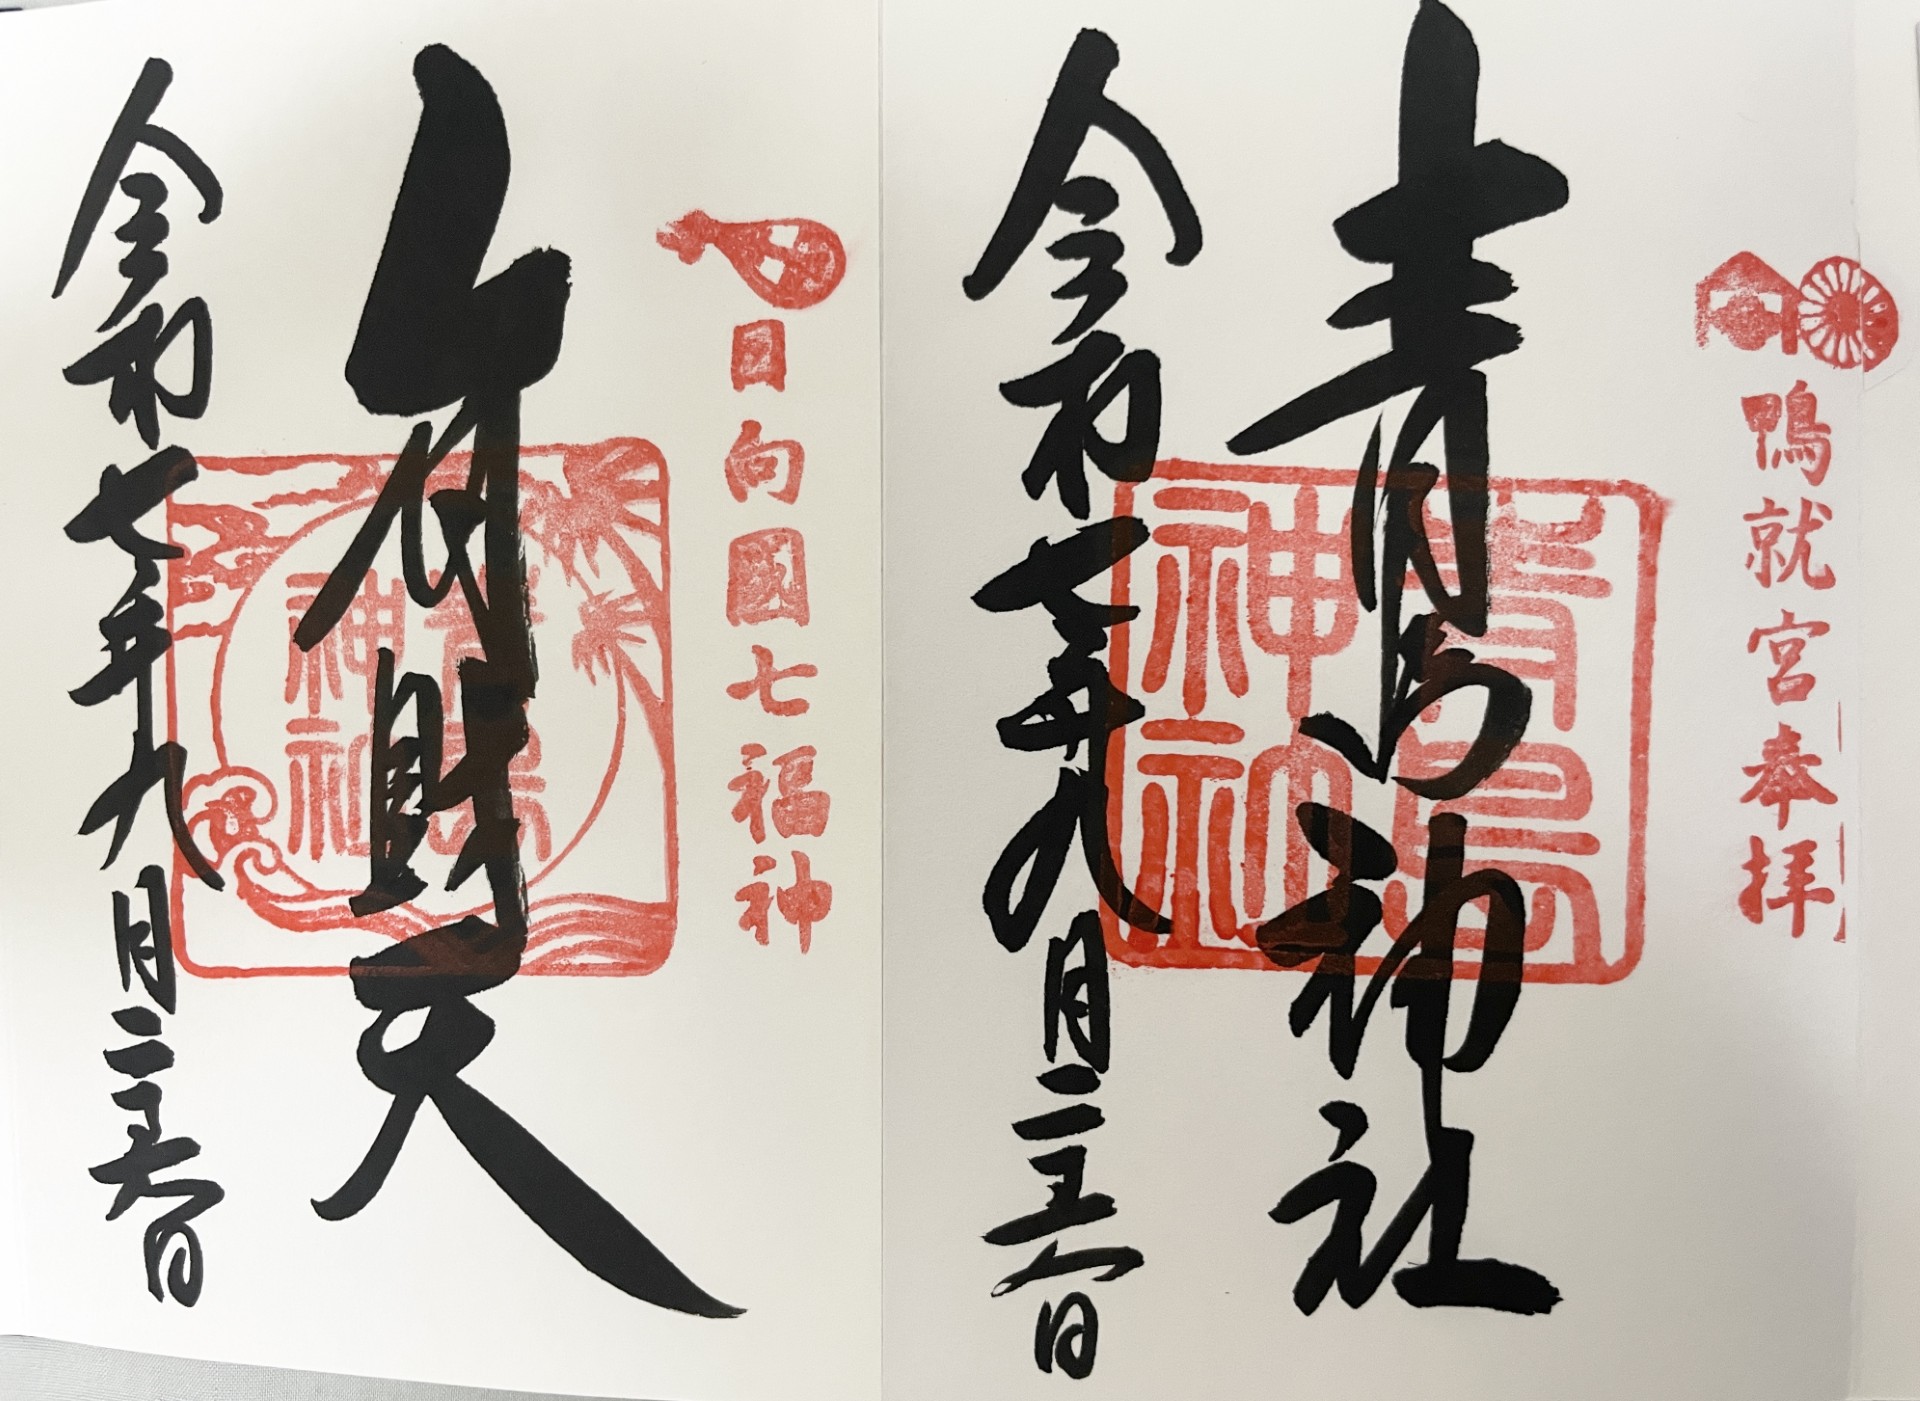 鴨就宮奉拝
青島神社
青島
神社
令和七年九月二十六日
日向國七福神
弁財天
青島
神社
令和七年九月二十六日